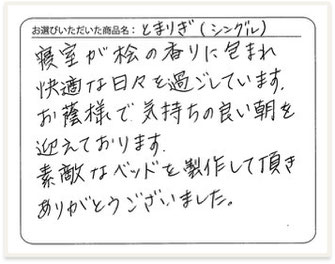 お選びいただいた商品名：とまりぎ(シングル)
寝室が桧の香りに包まれ
快適な日々を過ごしています.
お蔭様で気持ちの良い朝を
迎えております.
素敵なベッドを製作して頂き
ありがとうございました。